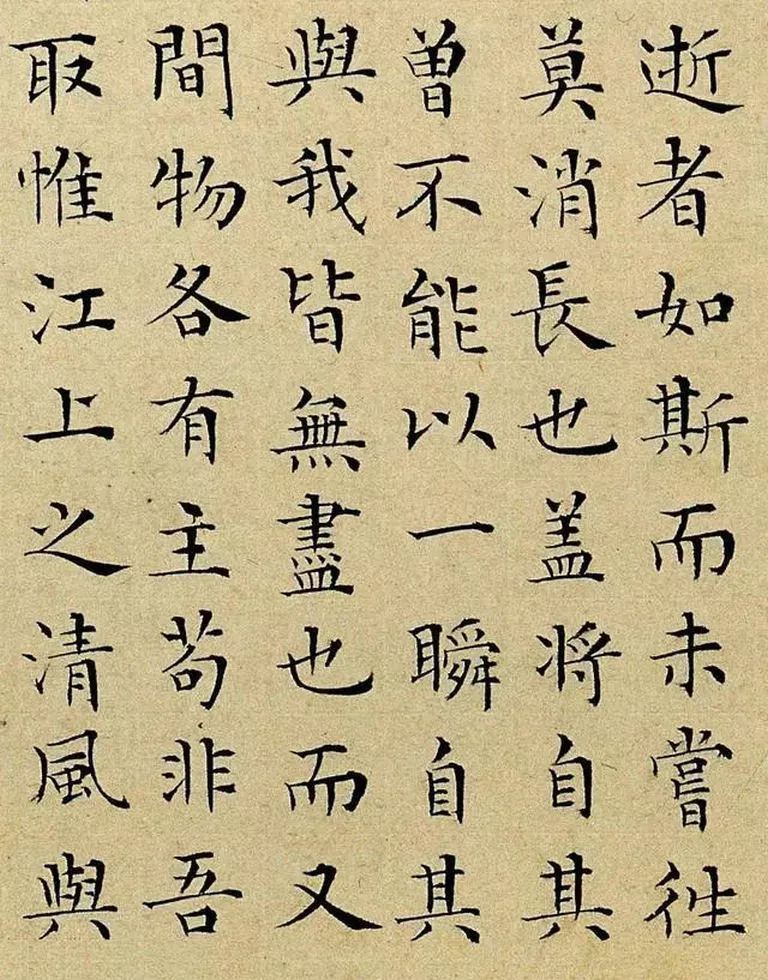 逝者如斯而未嘗徃
莫消長也盖将自其
曾不能以一瞬自其
與我皆無盡也而又
間物各有主苟非吾
取惟江上之清風與